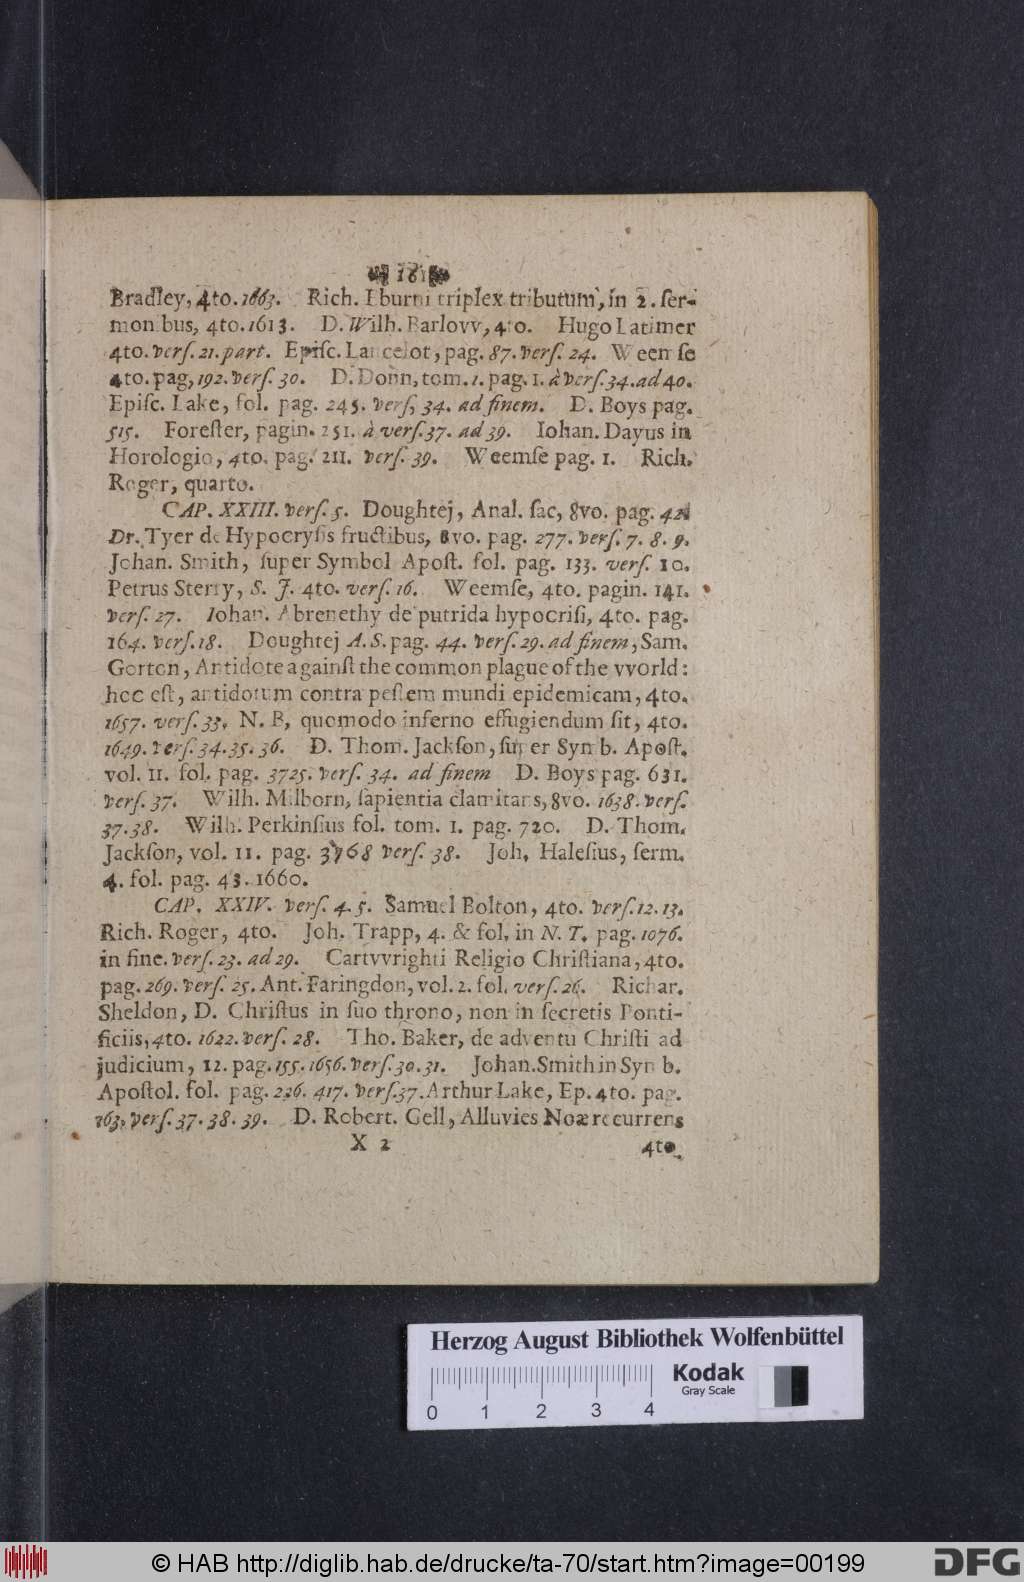 181
Bradley, 4to. 1663. Rich. Eburni triplex tributum, in 2. ſer-
monibus, 4to. 1613. D. Wilh. Barlovv, 4to. Hugo Latimer
4to. verſ. 21. part. Epiſc. Lancelot, pag. 87. verſ. 24. Weemſe
4to. pag, 192. verſ. 30. D. Donn, tom. 1. pag. 1. à verſ. 34. ad 40.
Epiſc. Lake, fol. pag. 245. verſ, 34. ad finem. D. Boys pag.
515. Foreſter, pagin. 251. à verſ. 37. ad 39. Iohan. Dayus in
Horologio, 4to. pag. 211. verſ. 39. Weemſe pag. 1. Rich.
Roger, quarto.
CAP. XXIII. verſ. 5. Doughtej, Anal. ſac, 8vo. pag. 42.
Dr. Tyer de Hypocryſis fructibus, 8vo. pag. 277. verſ. 7. 8. 9.
Johan. Smith, ſuper Symbol Apoſt. fol. pag. 133. verſ. 10.
Petrus Sterry, S. J. 4to. verſ. 16. Weemſe, 4to. pagin. 141.
verſ. 27. Iohan. Abrenethy de putrida hypocriſi, 4to. pag.
164. verſ. 18. Doughtej A. S. pag. 44. verſ. 29. ad finem, Sam.
Gorton, Antidote againſt the common plague of the vvorld:
hoc eſt, antidotum contra peſtem mundi epidemicam, 4to.
1657. verſ. 33. N. B, quomodo inferno effugiendum ſit, 4to.
1649. verſ. 34. 35. 36. D. Thom. Jackſon, ſuper Symb. Apoſt.
vol. 11. fol. pag. 3725. verſ. 34. ad finem D. Boys pag. 631.
verſ. 37. Wilh. Milborn, ſapientia clamitans, 8vo. 1638. verſ.
37. 38. Wilh. Perkinſius fol. tom. 1. pag. 720. D. Thom.
Jackſon, vol. 11. pag. 3768 verſ. 38. Joh. Haleſius, ſerm.
4. fol. pag. 43. 1660.
CAP. XXIV. verſ. 4. 5. Samuel Bolton, 4to. verſ. 12. 13.
Rich. Roger, 4to. Joh. Trapp, 4. & fol. in N. T. pag. 1076.
in fine. verſ. 23. ad 29. Cartvvrighti Religio Chriſtiana, 4to.
pag. 269. verſ. 25. Ant. Faringdon, vol. 2. fol. verſ. 26. Richar.
Sheldon, D. Chriſtus in ſuo throno, non in ſecretis Ponti-
ficiis, 4to. 1622. verſ. 28. Tho. Baker, de adventu Chriſti ad
judicium, 12. pag. 155. 1656. verſ. 30. 31. Johan. Smith in Symb.
Apoſtol. fol. pag. 236. 417. verſ. 37. Arthur Lake, Ep. 4to. pag.
163. verſ. 37. 38. 39. D. Robert. Gell, Alluvies Noæ recurrens
X 2 4to.
Herzog August Bibliothek Wolfenbüttel
Kodak
Gray Scale
0 1 2 3 4
© HAB http://diglib.hab.de/drucke/ta-70/start.htm?image=00199
DFG